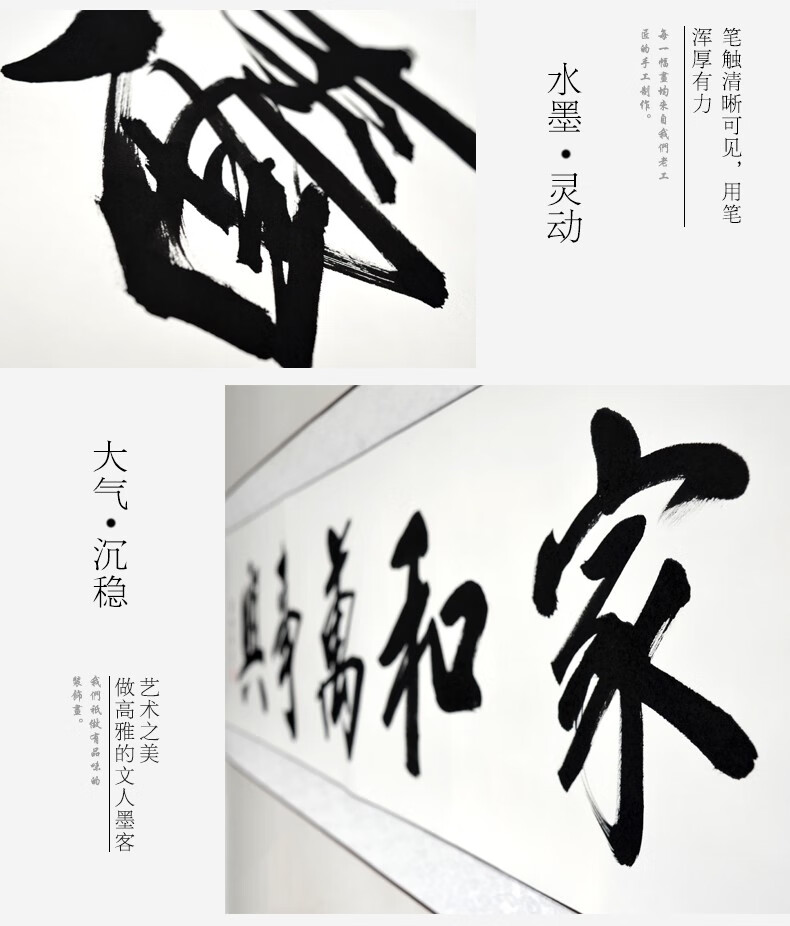 笔触清晰可见，用笔
浑厚有力
每一幅畫均来自我們老工
匠的手工制作。
水墨·灵动
大气·沉稳
艺术之美
做高雅的文人墨客
我們祇做有品味的
裝飾畫。
家和萬事興